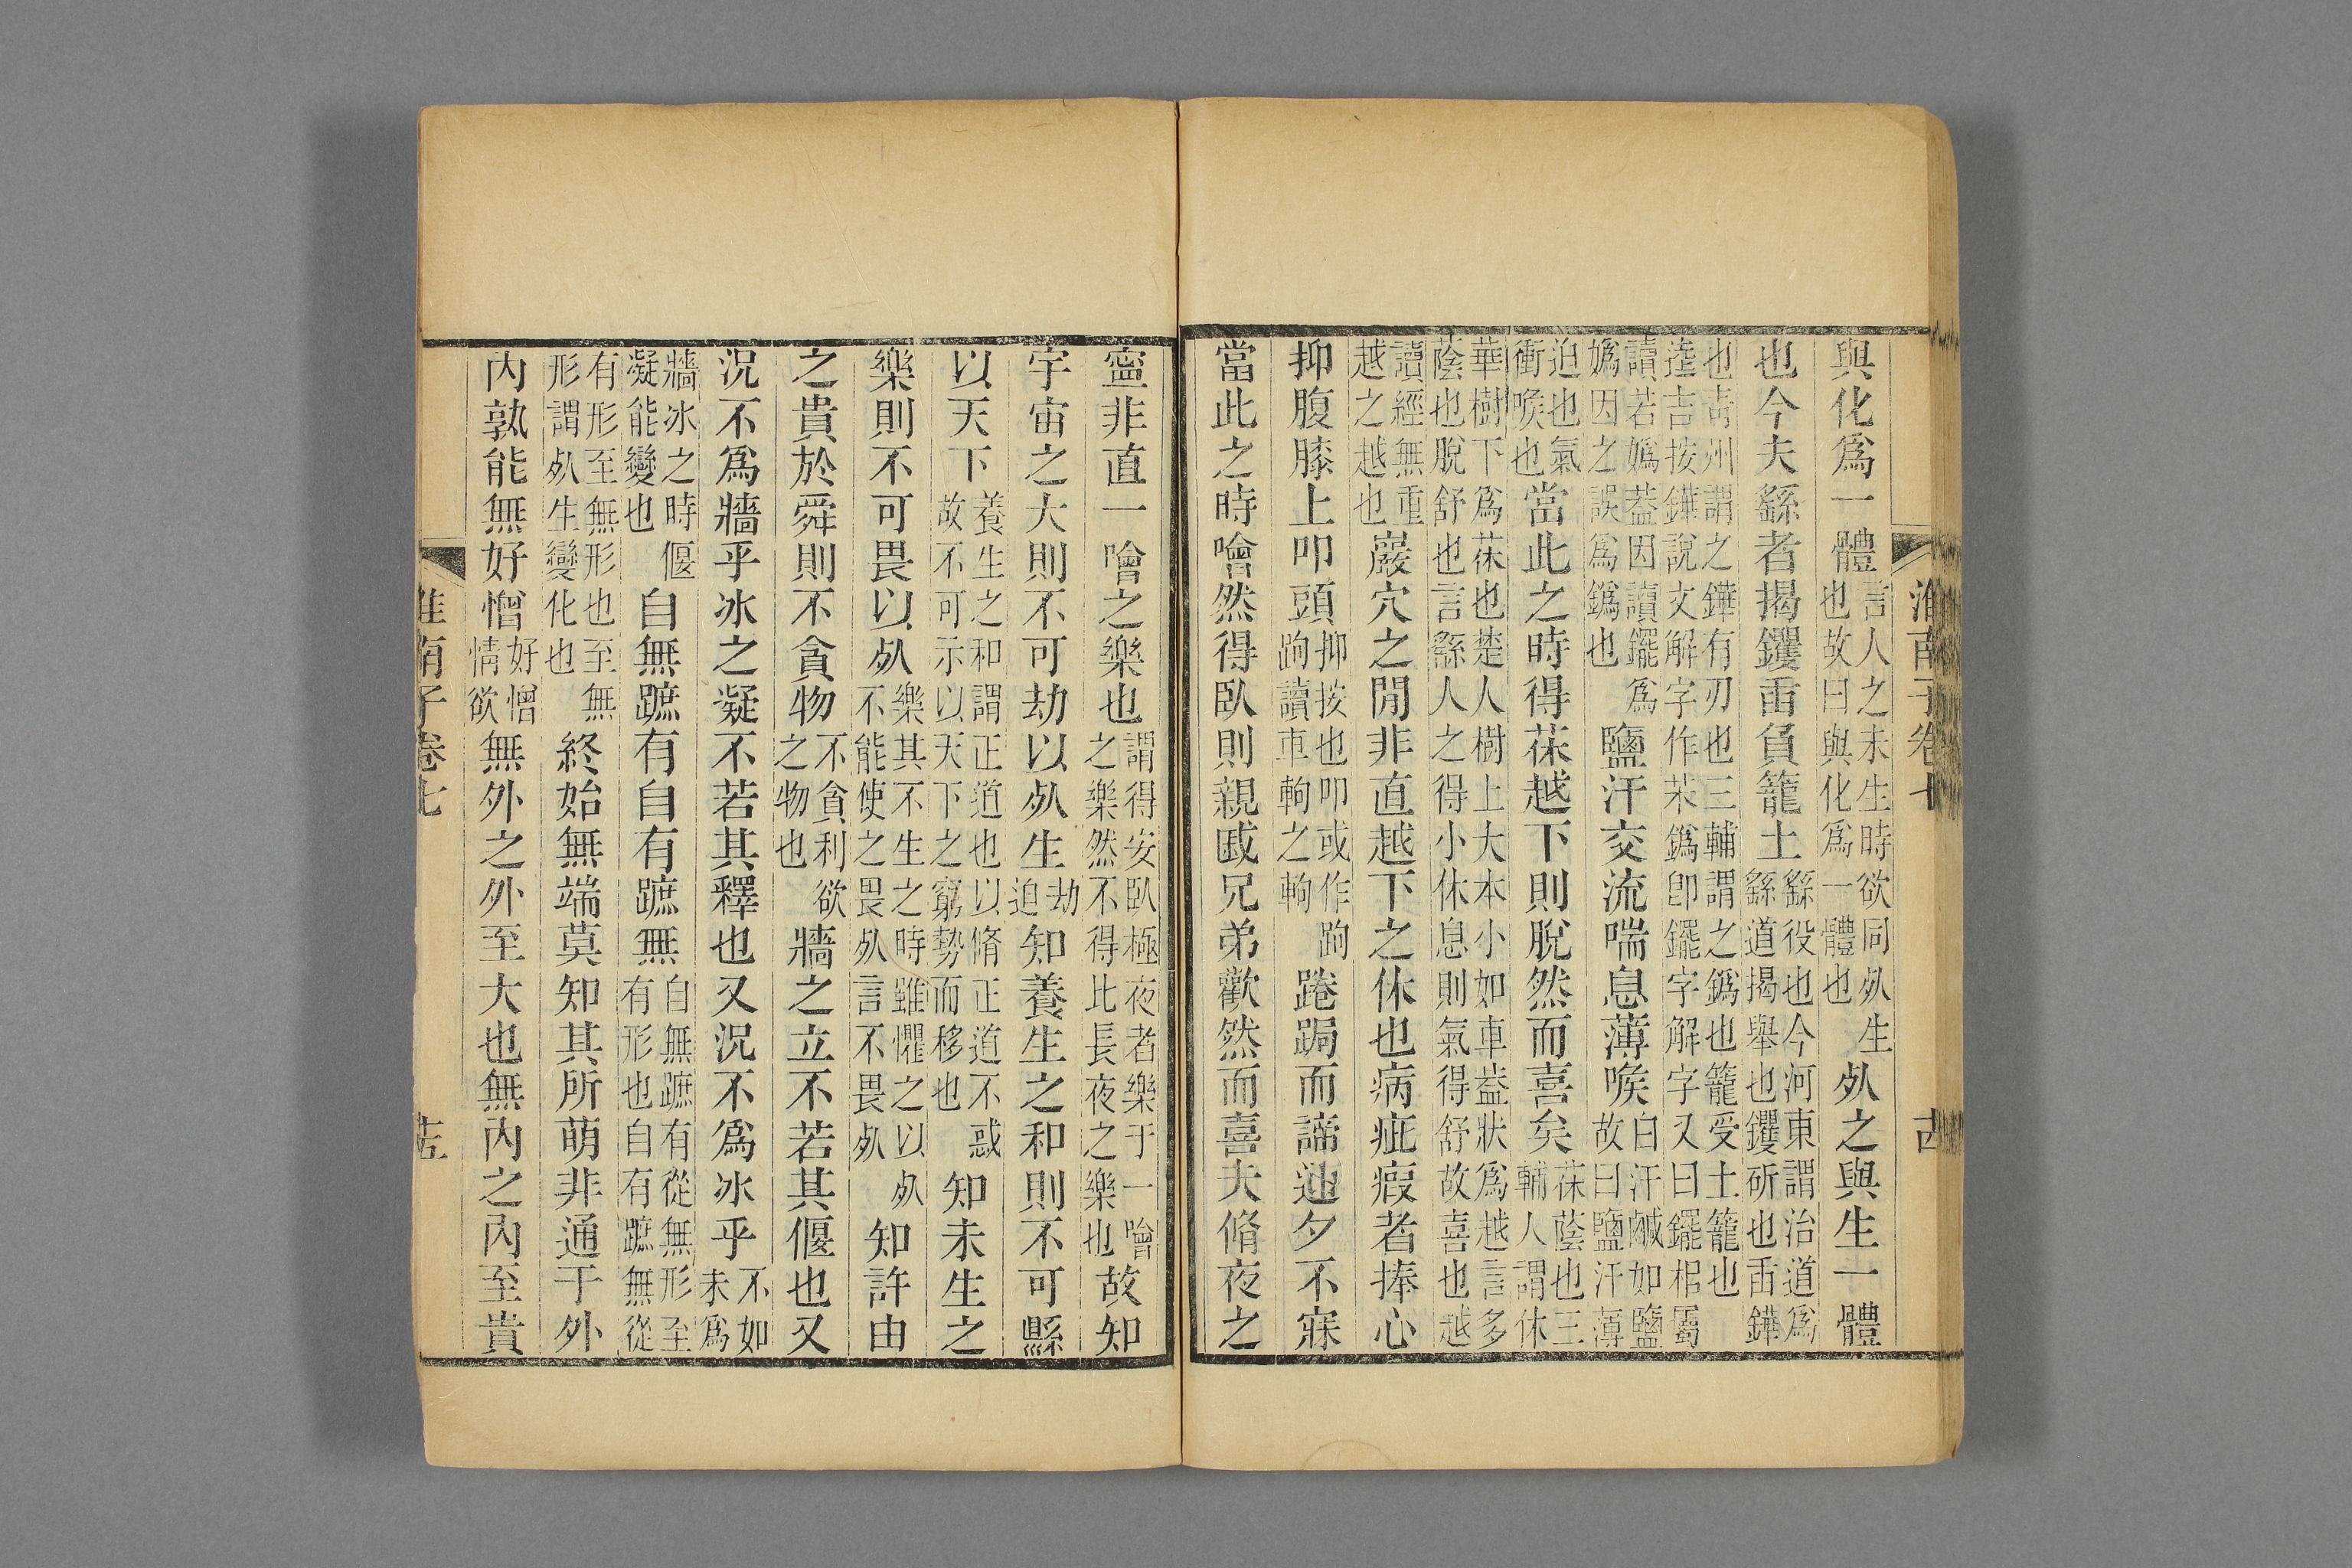 淮南子卷七 古
與化爲一體言人之未生時欲同𣦸生也故曰與化爲一體也𣦸之與生一體
也今夫繇者揭钁臿負籠土繇役也今河東謂治道爲繇道揭舉也钁斫也臿鏵
也靑州謂之鏵有刃也三輔謂之䥏也籠受土籠也逵吉按鏵說文解字作茉䥏卽䥯字解字又曰䥯梠屬
讀若嬀葢因讀䥯爲嬀因之誤爲䥏也鹽汗交流喘息薄喉白汗鹹如鹽故曰鹽汗薄
迫也氣衝喉也當此之時得茠越下則脫然而喜矣茠蔭也三輔人謂休
華樹下爲茠也楚人樹上大本小如車葢狀爲越言多蔭也脫舒也言繇人之得小休息則氣得舒故喜也越
讀經無重越之越也巖穴之閒非直越下之休也病疵瘕者捧心
抑腹膝上叩頭抑按也叩或作跔跔讀車軥之軥踡跼而諦通夕不寐
當此之時噲然得臥則親戚兄弟歡然而喜夫脩夜之
寧非直一噲之樂也謂得安臥極夜者樂于一噲之樂然不得比長夜之樂也故知
宇宙之大則不可劫以𣦸生劫迫知養生之和則不可縣
以天下養生之和謂正道也以脩正道不惑故不可示以天下之窮勢而移也知未生之
樂則不可畏以𣦸樂其不生之時雖懼之以𣦸不能使之畏𣦸言不畏𣦸知許由
之貴於舜則不貪物不貪利欲之物也牆之立不若其偃也又
況不爲牆乎冰之凝不若其釋也又況不爲冰乎不如未爲
牆冰之時偃凝能變也自無蹠有自有蹠無自無蹠有從無形至有形也自有蹠無從
有形至無形也至無形謂𣦸生變化也終始無端莫知其所萌非通于外
內孰能無好憎好憎情欲無外之外至大也無內之內至貴
淮南子卷七 𠮷